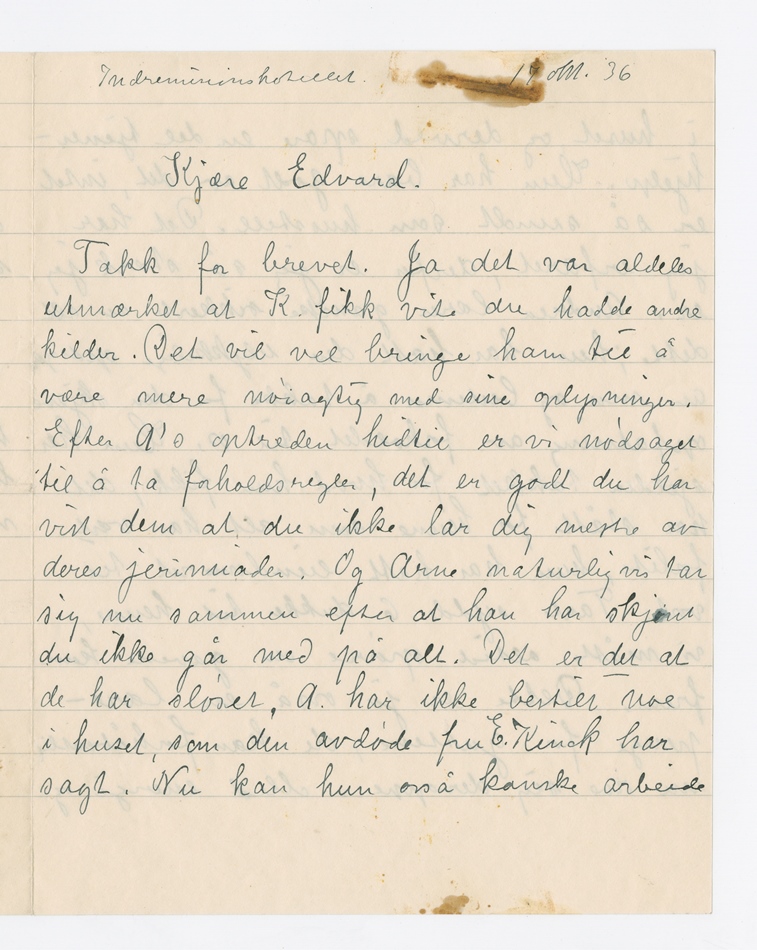 Indremisionshotellet. 17 okt. '36
Kjære Edvard.
Takk for brevet. Ja det var aldeles
utmærket at K. fikk vite du hadde andre
kilder. Det vil vel bringe ham til å
være mere nöiagtig med sine oplysninger.
Efter A's optreden hidtil er vi nödsaget
til å ta forholdsregler, det er godt du har
vist dem at du ikke lar dig mestre av
deres jerimiader. Og Arne naturligvis tar
sig nu sammen efter at han har skjönt
du ikke går med på alt. Det er det at
de har slöset, A. har ikke bestilt noe
i huset, som den avdöde fru E. Kinck har
sagt. Nu kan hun også kanske arbeide